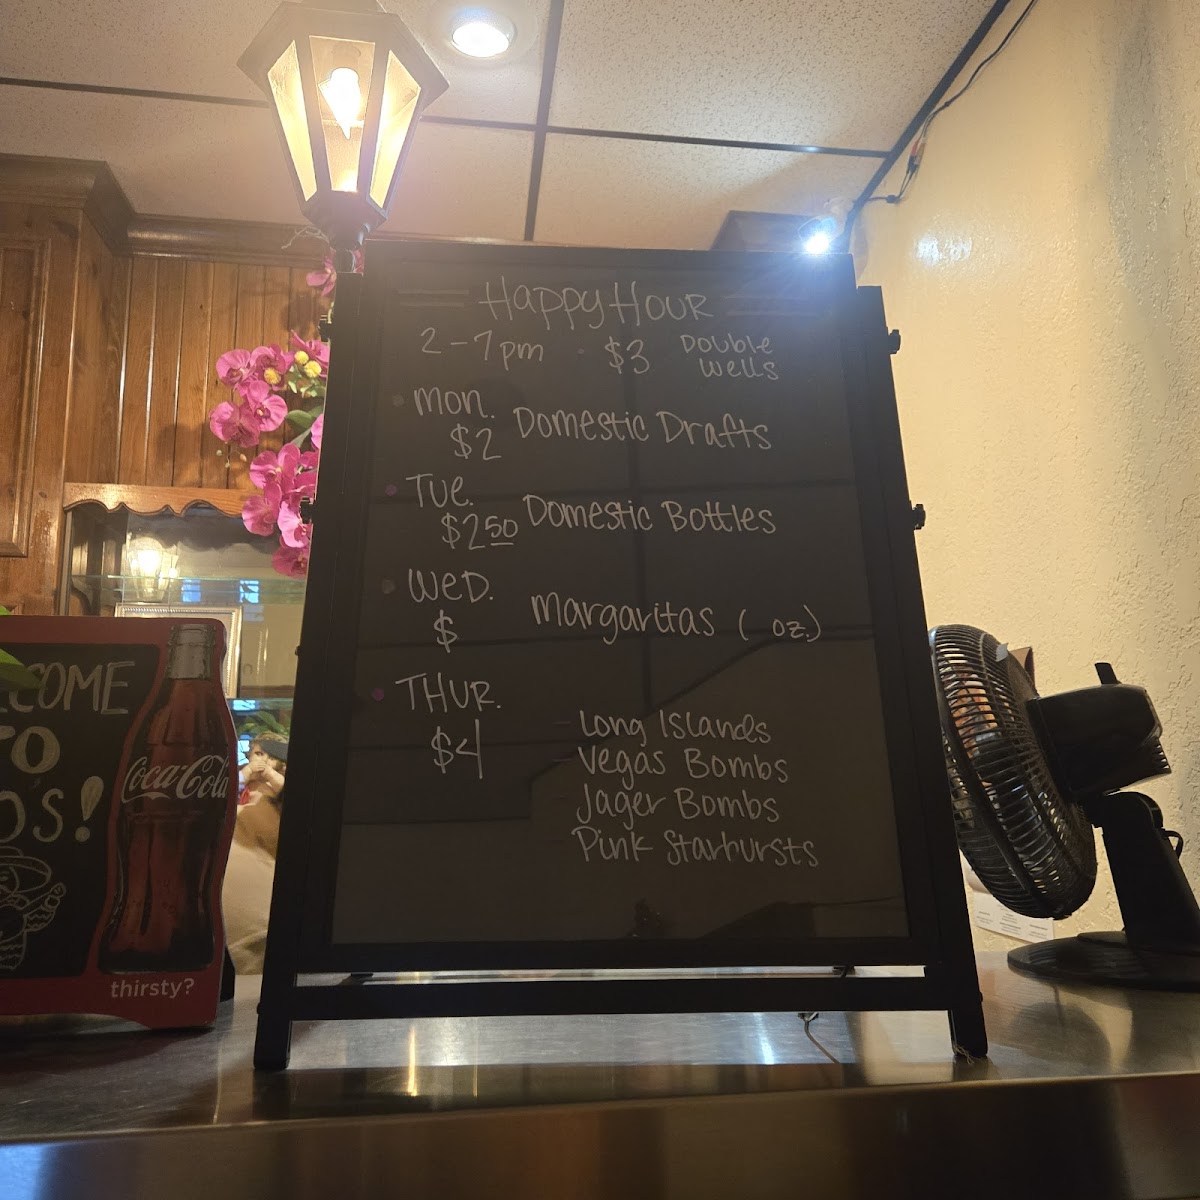 Happy Hour
2-7pm · $3 Double Wells
Mon.
$2 Domestic Drafts
Tue.
$2.50 Domestic Bottles
Wed.
$ Margaritas ( oz.)
Thur.
$4
- Long Islands
- Vegas Bombs
Jager Bombs
Pink Starbursts
COME
TO
O'S!
Coca-Cola
thirsty?